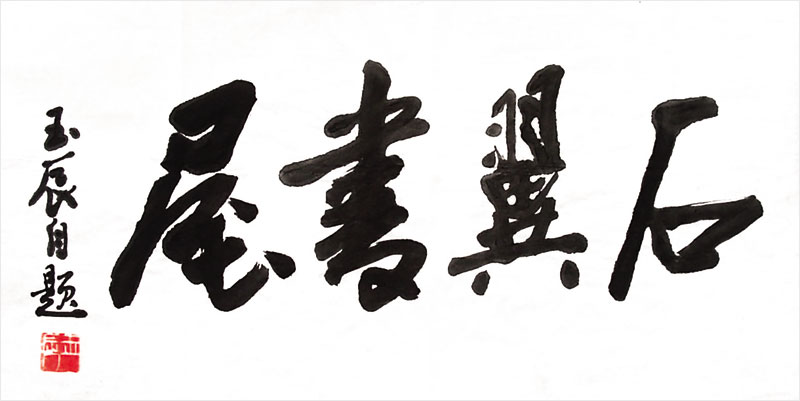 石翼書屋
玉辰自题